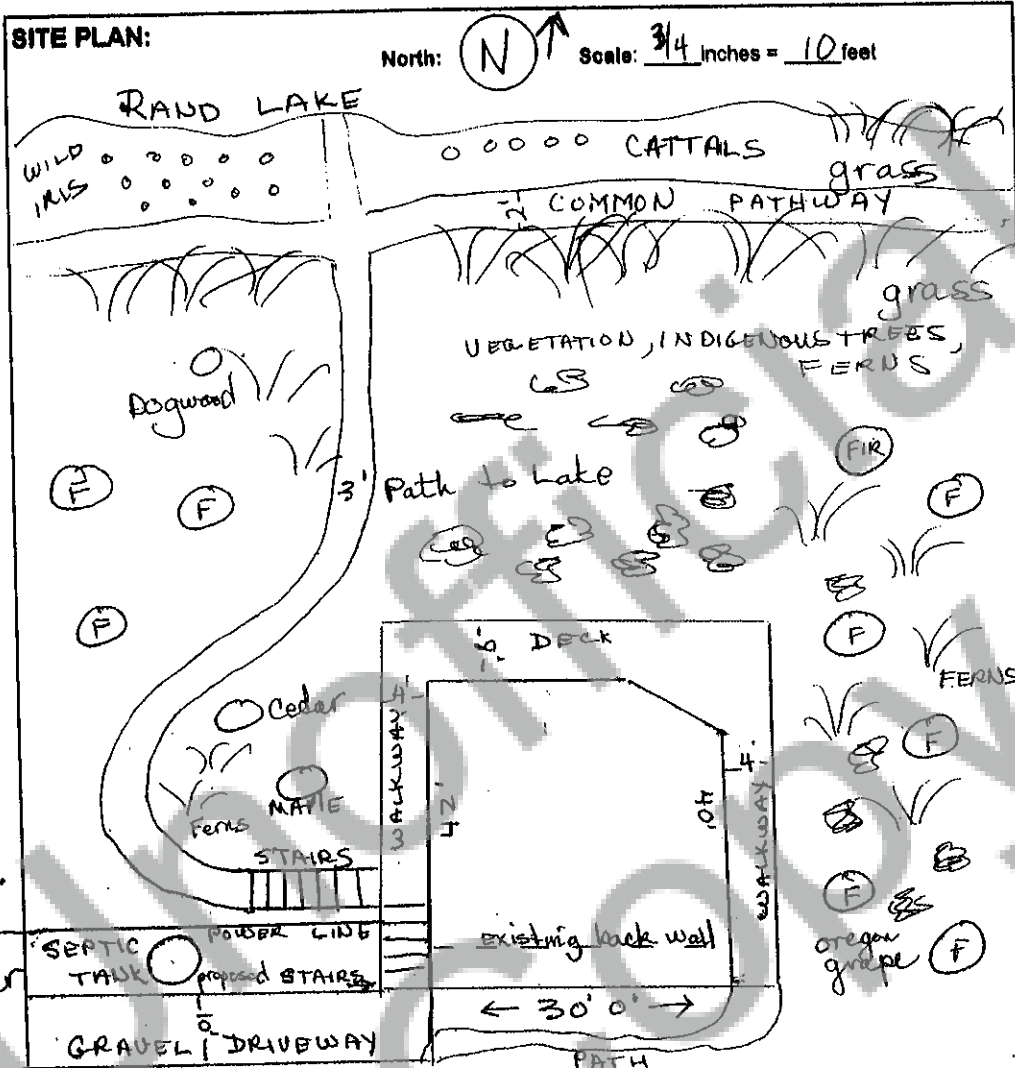 SITE PLAN:
North: N Scale: 3/4 inches = 10 feet
RAND LAKE
WILD IRIS
CATTAILS
grass
2'
COMMON PATHWAY
grass
VEGETATION, INDIGENOUS TREES,
FERNS
Dogwood
FIR
3' Path to Lake
F
F
F
F
F
DECK
FERNS
Cedar
4'
WALKWAY
42'
4'
40'
WALKWAY
F
MAPLE
Ferns
STAIRS
F
POWER LINE
SEPTIC
TANK
proposed STAIRS
existing back wall
oregon
grape
F
← 30' 0" →
GRAVEL DRIVEWAY
PATH
unofficial
copy